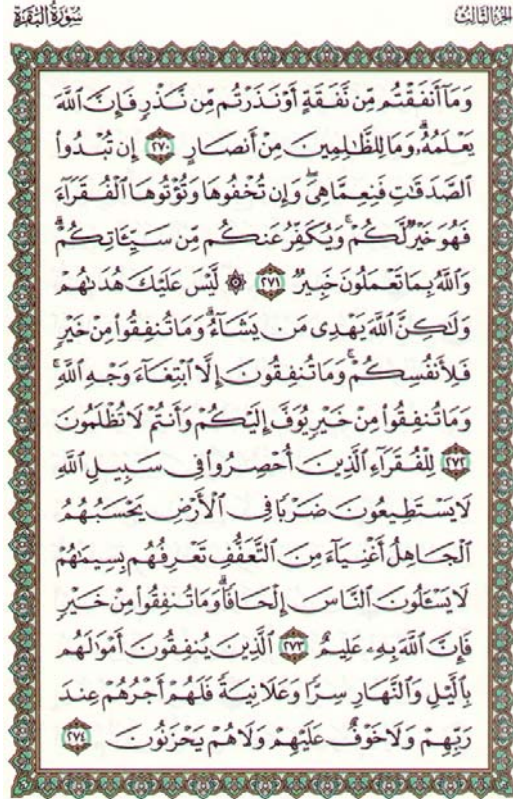 الجزء الثالث
سورة البقرة
وَمَآ أَنفَقْتُم مِّن نَّفَقَةٍ أَوْ نَذَرْتُم مِّن نَّذْرٍ فَإِنَّ ٱللَّهَ
يَعْلَمُهُۥۗ وَمَا لِلظَّٰلِمِينَ مِنْ أَنصَارٍ ٢٧٠ إِن تُبْدُوا۟
ٱلصَّدَقَٰتِ فَنِعِمَّا هِىَۖ وَإِن تُخْفُوهَا وَتُؤْتُوهَا ٱلْفُقَرَآءَ
فَهُوَ خَيْرٌ لَّكُمْۚ وَيُكَفِّرُ عَنكُم مِّن سَيِّـَٔاتِكُمْۗ
وَٱللَّهُ بِمَا تَعْمَلُونَ خَبِيرٌ ٢٧١ ۞ لَّيْسَ عَلَيْكَ هُدَىٰهُمْ
وَلَٰكِنَّ ٱللَّهَ يَهْدِى مَن يَشَآءُۗ وَمَا تُنفِقُوا۟ مِنْ خَيْرٍ
فَلِأَنفُسِكُمْۚ وَمَا تُنفِقُونَ إِلَّا ٱبْتِغَآءَ وَجْهِ ٱللَّهِۚ
وَمَا تُنفِقُوا۟ مِنْ خَيْرٍ يُوَفَّ إِلَيْكُمْ وَأَنتُمْ لَا تُظْلَمُونَ
٢٧٢ لِلْفُقَرَآءِ ٱلَّذِينَ أُحْصِرُوا۟ فِى سَبِيلِ ٱللَّهِ
لَا يَسْتَطِيعُونَ ضَرْبًا فِى ٱلْأَرْضِ يَحْسَبُهُمُ
ٱلْجَاهِلُ أَغْنِيَآءَ مِنَ ٱلتَّعَفُّفِ تَعْرِفُهُم بِسِيمَٰهُمْ
لَا يَسْـَٔلُونَ ٱلنَّاسَ إِلْحَافًاۗ وَمَا تُنفِقُوا۟ مِنْ خَيْرٍ
فَإِنَّ ٱللَّهَ بِهِۦ عَلِيمٌ ٢٧٣ ٱلَّذِينَ يُنفِقُونَ أَمْوَٰلَهُم
بِٱلَّيْلِ وَٱلنَّهَارِ سِرًّا وَعَلَانِيَةً فَلَهُمْ أَجْرُهُمْ عِندَ
رَبِّهِمْ وَلَا خَوْفٌ عَلَيْهِمْ وَلَا هُمْ يَحْزَنُونَ ٢٧٤